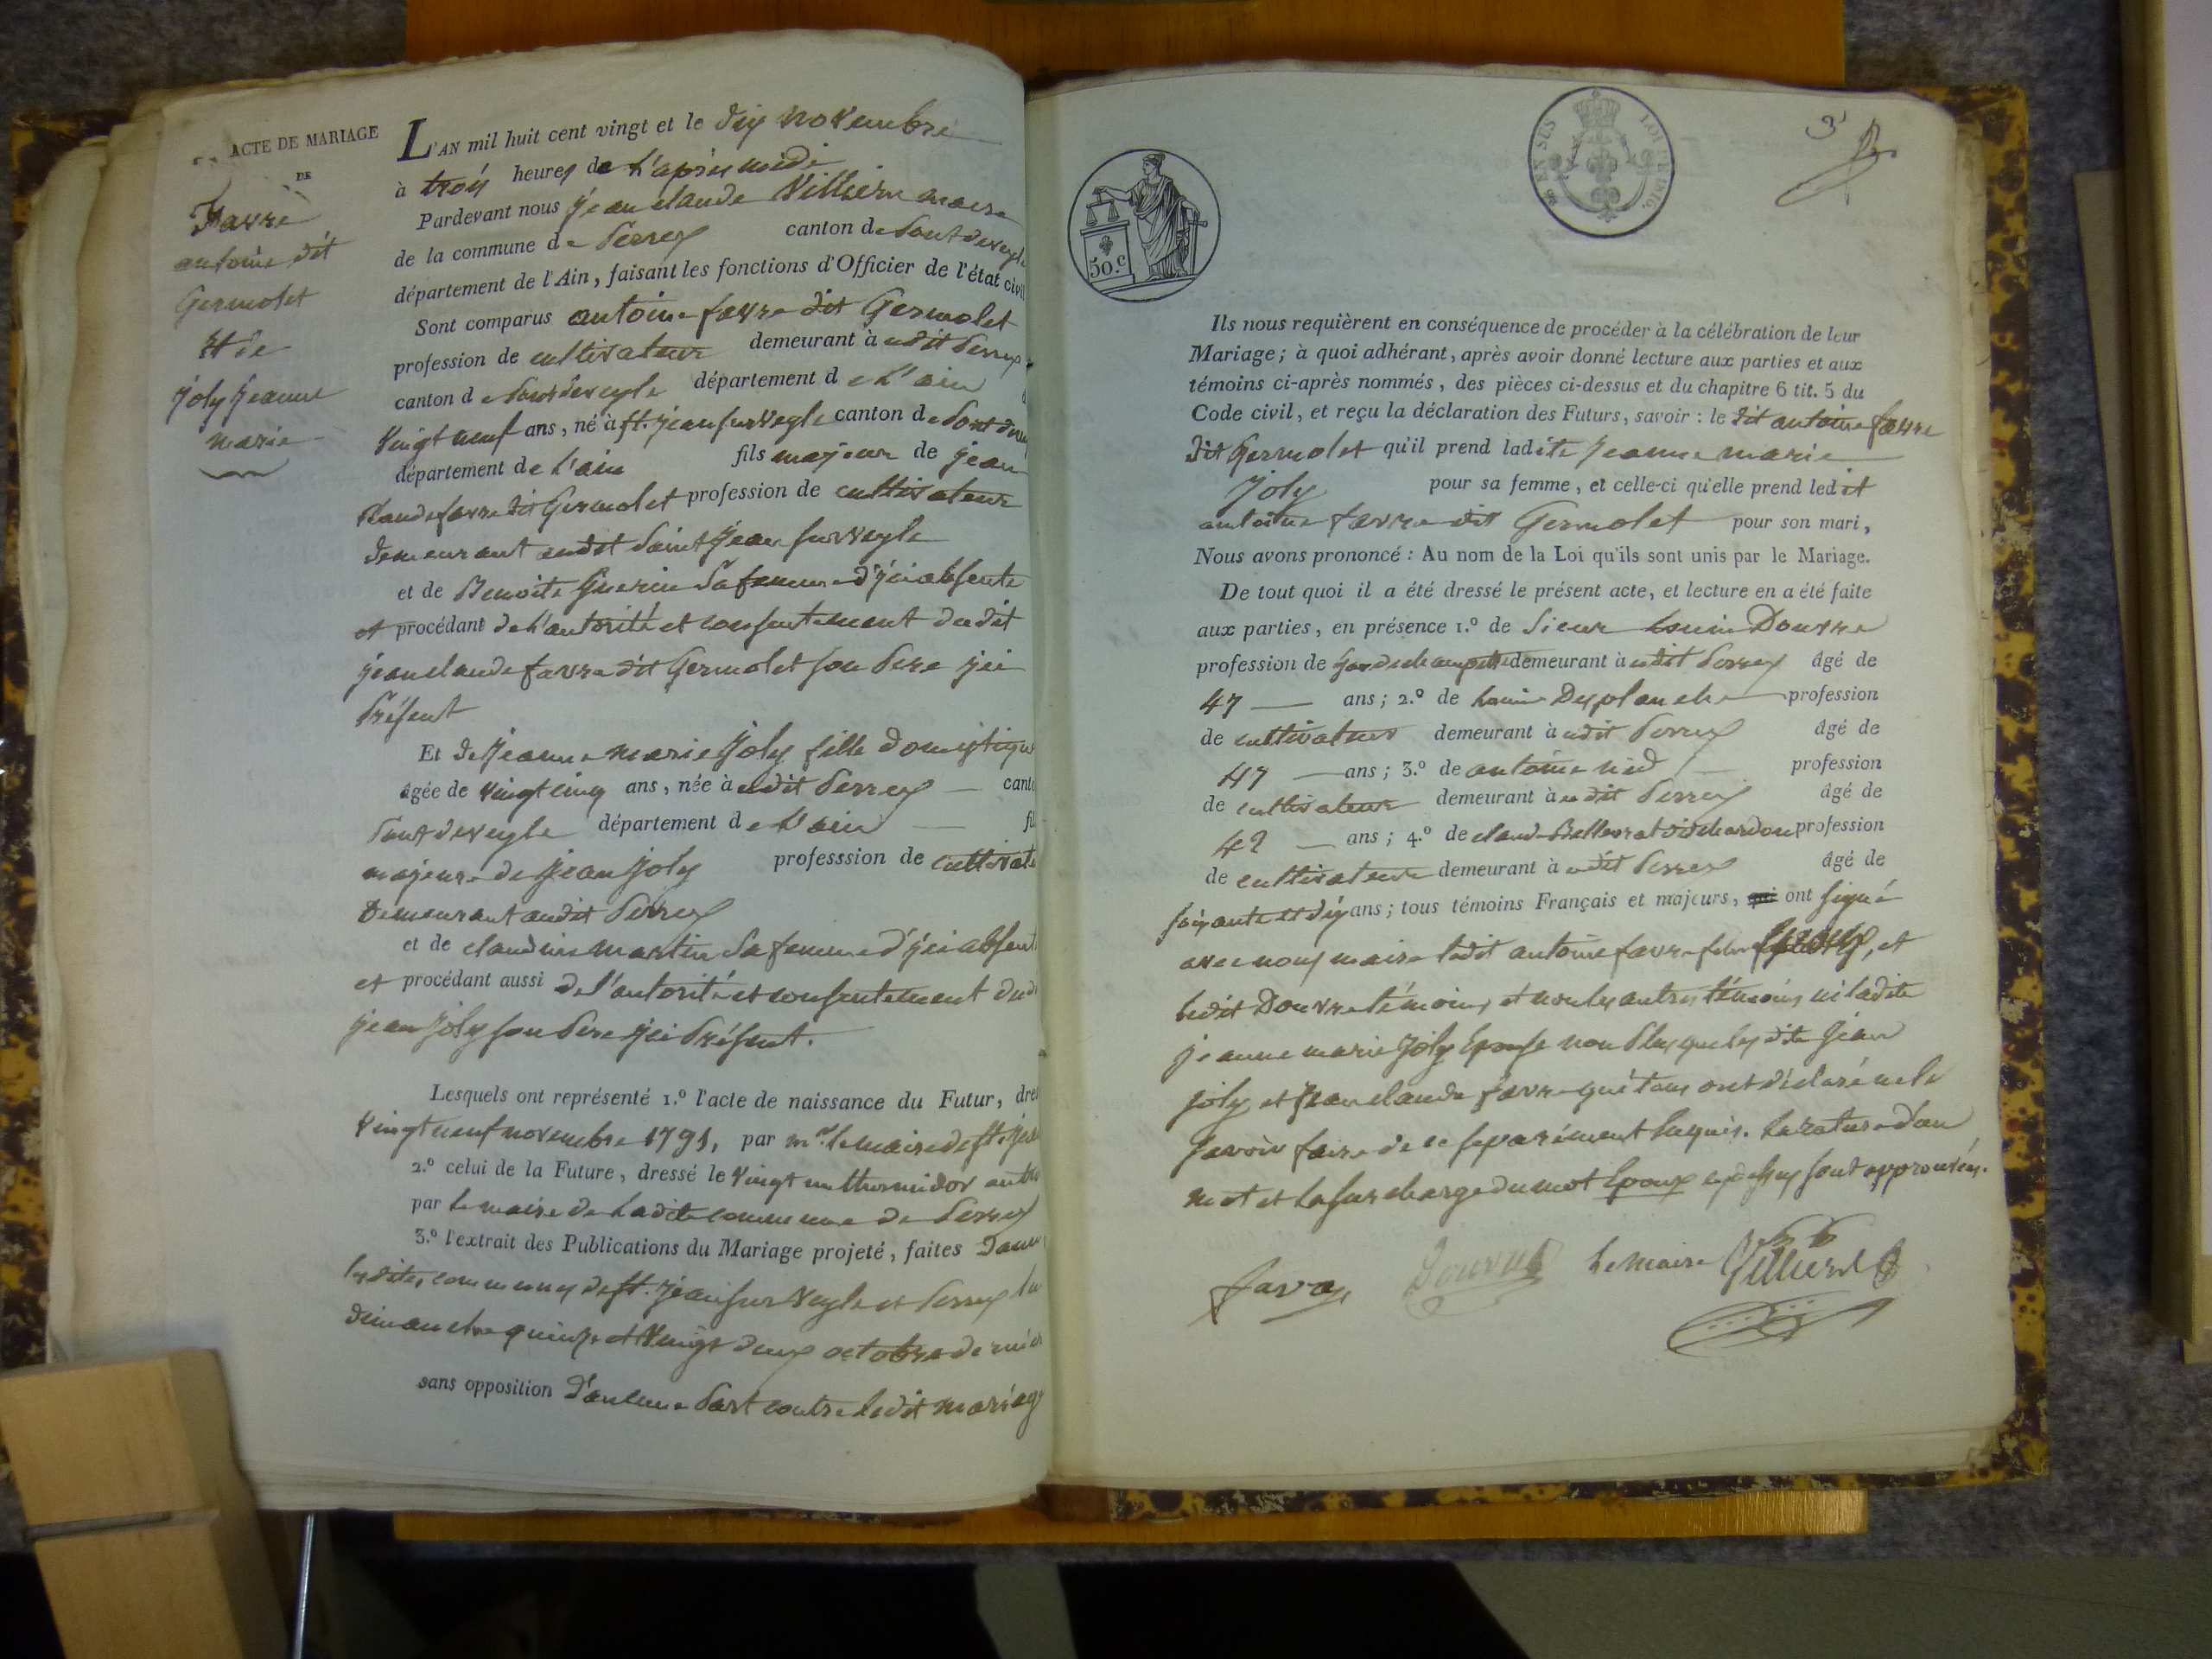 ACTE DE MARIAGE
DE
Favre
antoine dit
Germolet
Et de
Joly Jeanne
marie
L'AN mil huit cent vingt et le dix novembre
à trois heures de L'après midi
Pardevant nous jean claude Villierd maire
de la commune de Perrex canton de Pontdeveyle
département de l'Ain, faisant les fonctions d'Officier de l'état civil
Sont comparus antoine favre dit Germolet
profession de cultivateur demeurant à udit Perrex
canton de Pontdeveyle département de L'ain
Vingt neuf ans, né à st. jean sur Veyle canton de Pont deve
département de L'ain fils majeur de jean
Claude favre dit Germolet profession de cultivateur
demeurant audit Saint Jean sur Veyle
et de Benoite Guerin Sa femme d'ici absente
et procédant de L'autorité et consentement dudit
jean claude favre dit Germolet son Pere ici
Présent
Et de Jeanne marie Joly fille domestique
âgée de Vingt cinq ans, née à udit Perrex cant
Pontdeveyle département de L'ain fi
majeure de Jean Joly professsion de cultivate
Demeurant audit Perrex
et de claudine martin Sa femme d'ici absent
et procédant aussi de l'autorité et consentement dud
jean Joly son Pere ici Présent.
Lesquels ont représenté 1.º l'acte de naissance du Futur, dre
Vingt neuf novembre 1791, par mr. le maire de st. jean
2.º celui de la Future, dressé le Vingt un thermidor an
par Le maire de Ladite commune de Perrex
3.º l'extrait des Publications du Mariage projeté, faites Dans
lesdites communes de st. jean sur Veyle et Perrex les
dimanche quinze et Vingt deux octobre dernier
sans opposition D'aucune Part contre Ledit mariage
50.c
3
Ils nous requièrent en conséquence de procéder à la célébration de leur
Mariage; à quoi adhérant, après avoir donné lecture aux parties et aux
témoins ci-après nommés, des pièces ci-dessus et du chapitre 6 tit. 5 du
Code civil, et reçu la déclaration des Futurs, savoir: le dit antoine favre
dit Germolet qu'il prend ladite Jeanne marie
Joly pour sa femme, et celle-ci qu'elle prend ledit
antoine favre dit Germolet pour son mari,
Nous avons prononcé: Au nom de la Loi qu'ils sont unis par le Mariage.
De tout quoi il a été dressé le présent acte, et lecture en a été faite
aux parties, en présence 1.º de Sieur Louis Douvre
profession de garde champetre demeurant à udit Perrex âgé de
47 ans; 2.º de Louis Desplanche profession
de cultivateur demeurant à udit Perrex âgé de
47 ans; 3.º de antoine nid profession
de cultivateur demeurant à udit Perrex âgé de
42 ans; 4.º de claude Bellevrat dit chardon profession
de cultivateur demeurant à udit Perrex âgé de
soixante et dix ans; tous témoins Français et majeurs, qui ont signé
avec nous maire Ledit antoine favre futur époux, et
Ledit Douvre témoins, et non les autres témoins ni ladite
jeanne marie Joly Epouse non Plus que les dits Jean
joly et jean claude favre qui tous ont déclaré ne le
Savoir faire de ce separément Enquis. La rature d'un
mot et La surcharge du mot Epoux cy dessus sont approuvées.
favre Douvre Le maire Villierd